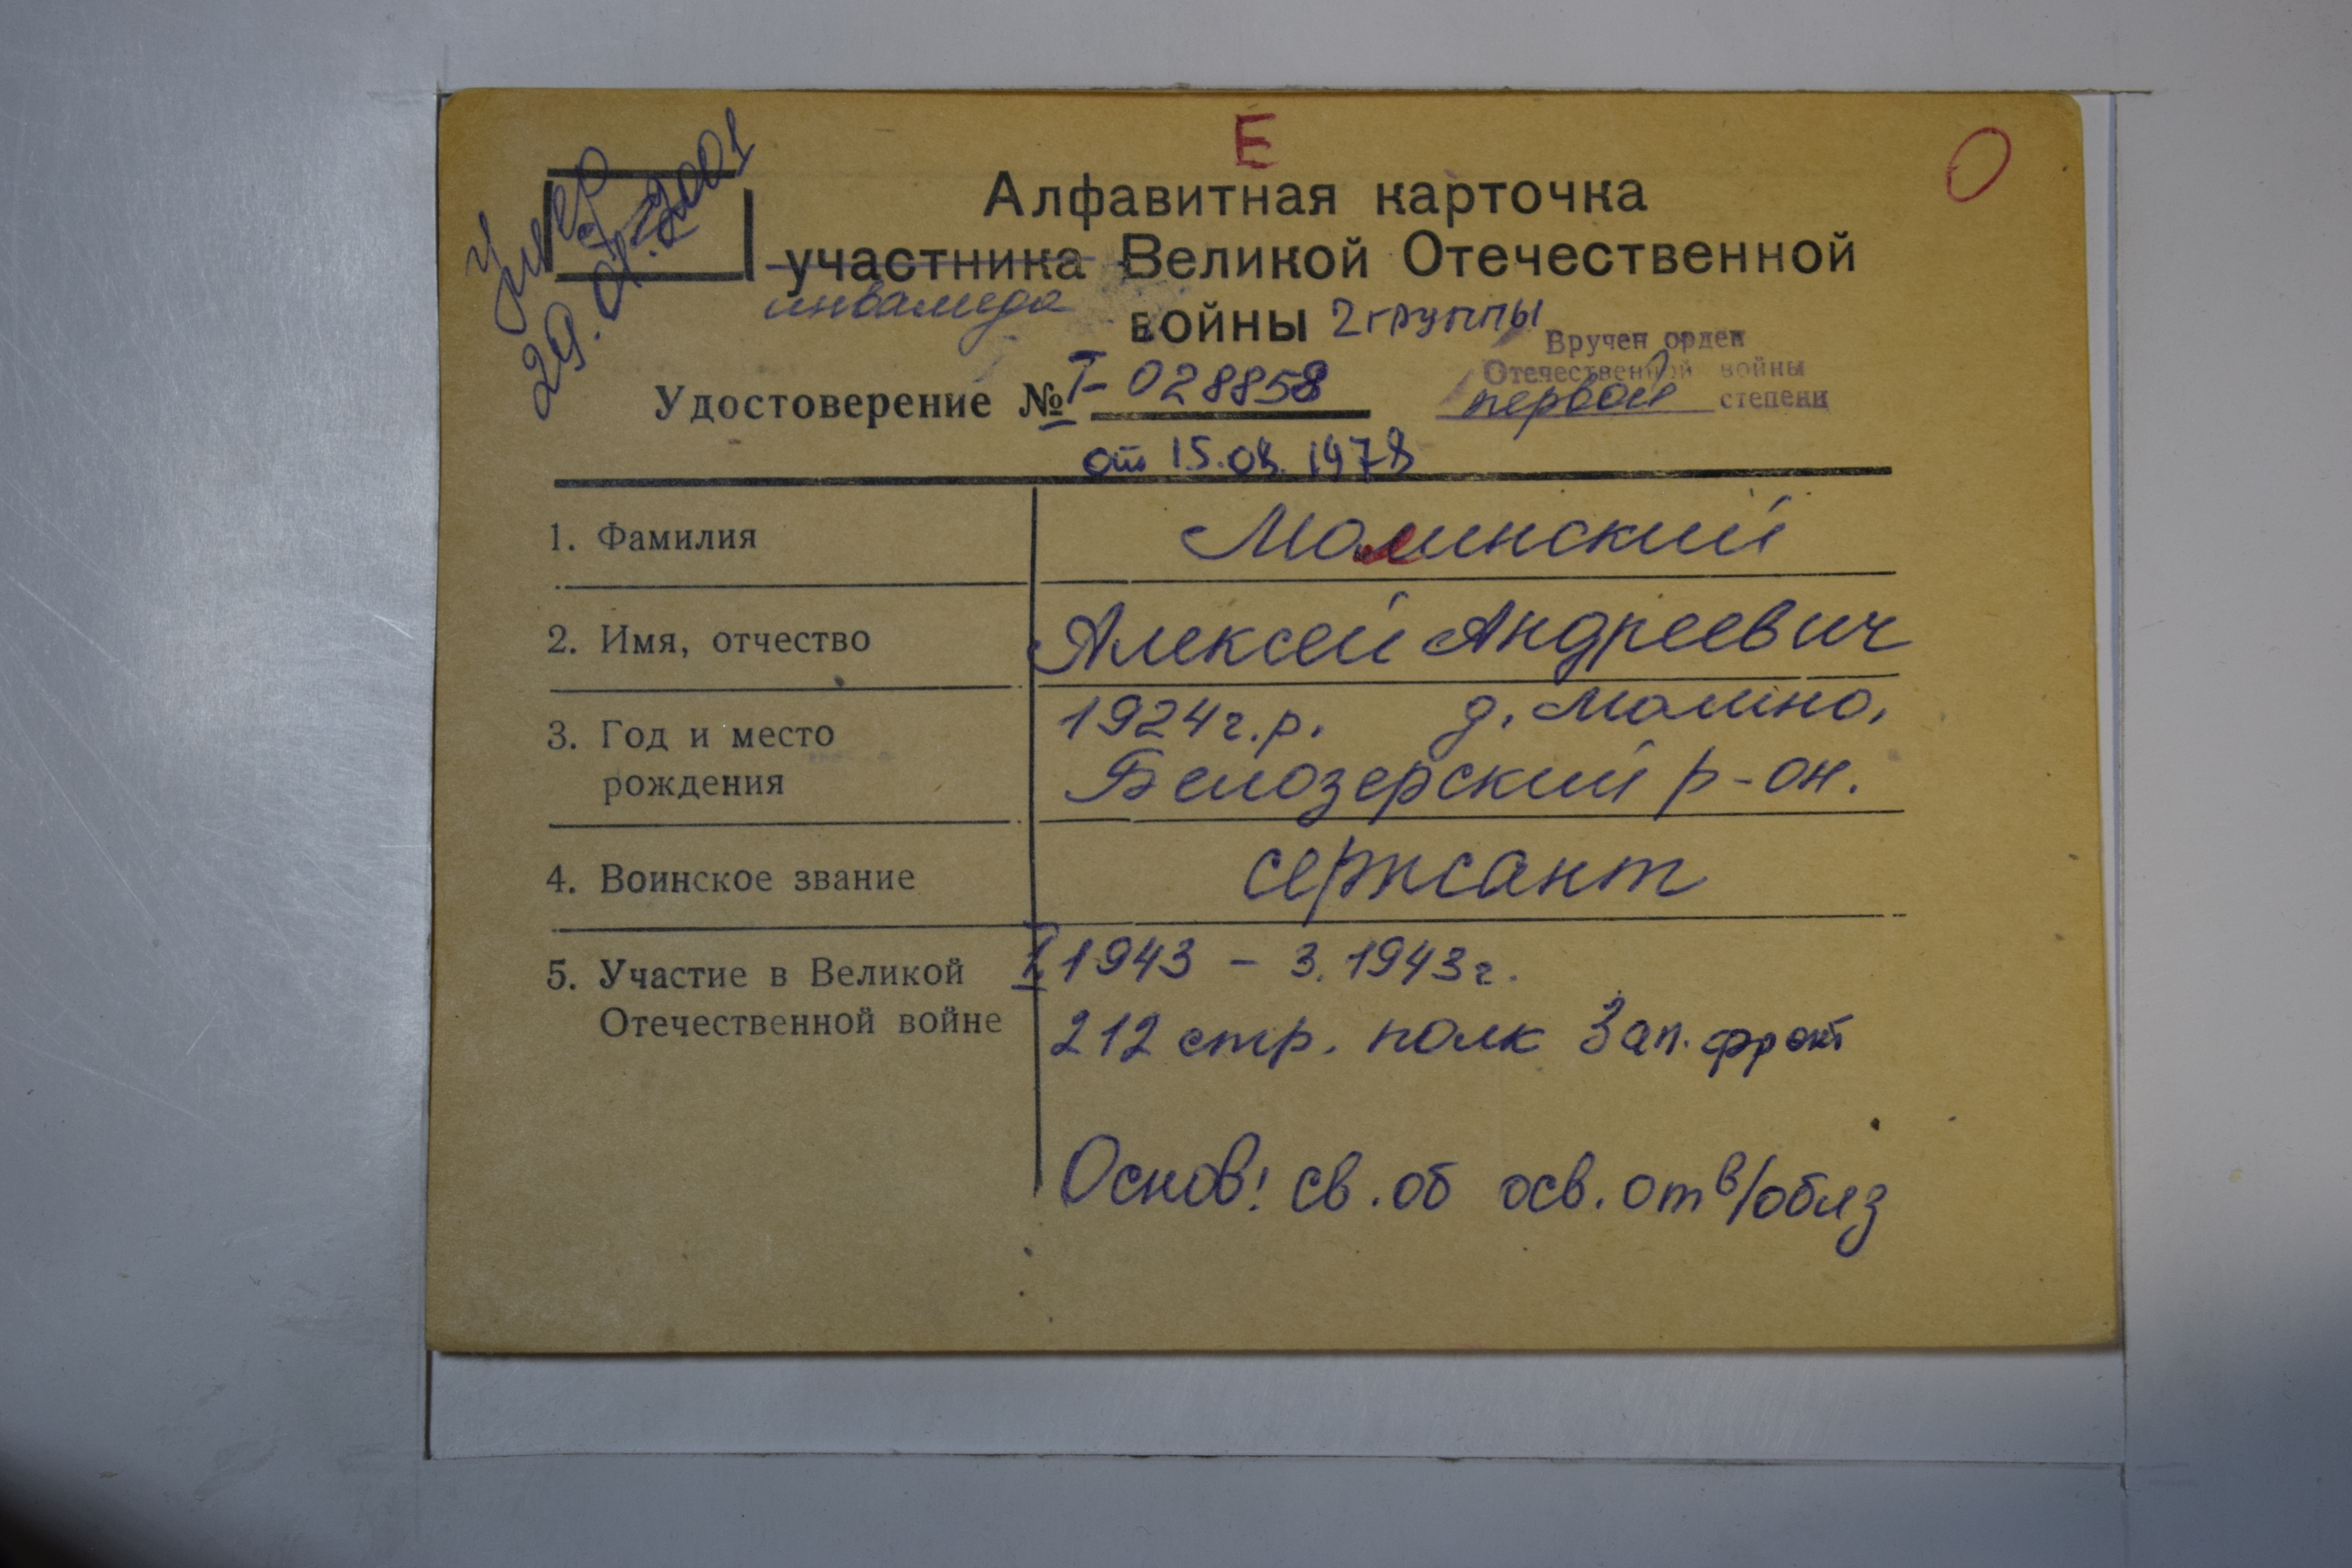 Е
О
умер
29.01.2001
Алфавитная карточка
участника Великой Отечественной
инвалида
войны 2 группы
Вручен орден
Отечественной войны
первой степени
Удостоверение № I-028858
от 15.08.1978
1. Фамилия Малинский
2. Имя, отчество Алексей Андреевич
3. Год и место 1924 г.р. д. Малино,
рождения Белозерский р-он.
4. Воинское звание сержант
5. Участие в Великой I 1943 – 3.1943 г.
Отечественной войне 212 стр. полк Зап. фронт
Основ: св. об осв. от в/обяз